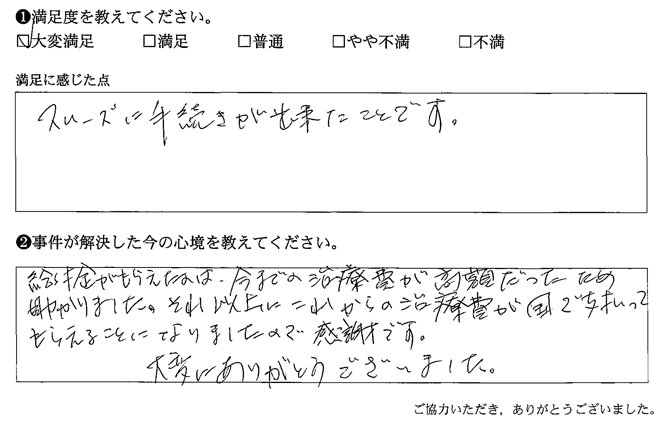 ❶満足度を教えてください。
☑大変満足 □満足 □普通 □やや不満 □不満
満足に感じた点
スムーズに手続きが出来たことです。
❷事件が解決した今の心境を教えてください。
給付金がもらえたのは、今までの治療費が高額だったため
助かりました。それ以上にこれからの治療費が国で支払って
もらえることになりましたので感謝です。
大変にありがとうございました。
ご協力いただき，ありがとうございました。